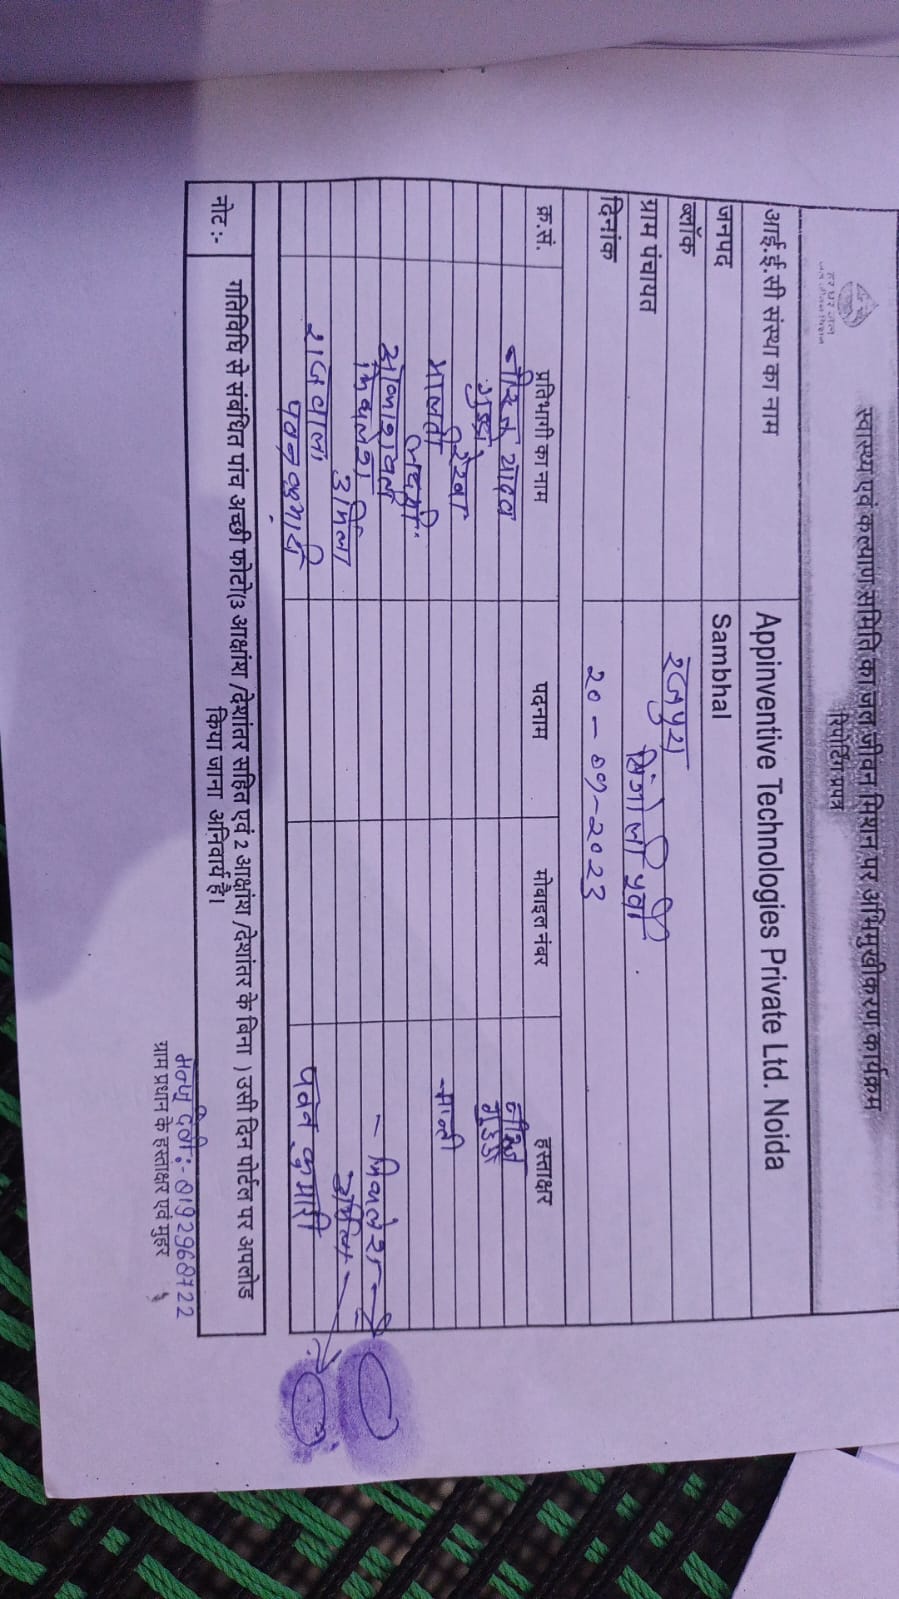 हर घर जल
जल जीवन मिशन
स्वास्थ्य एवं कल्याण समिति का जल जीवन मिशन पर अभिमुखीकरण कार्यक्रम
रिपोर्टिंग प्रपत्र
आई.ई.सी संस्था का नाम Appinventive Technologies Private Ltd. Noida
जनपद Sambhal
ब्लॉक रजपुरा
ग्राम पंचायत सिंगोली पूर्वी
दिनांक 20-07-2023
क्र.सं. प्रतिभागी का नाम पदनाम मोबाइल नंबर हस्ताक्षर
नीरज यादव नीरज
गुड्डो गुड्डो
रेखा
मालती मालती
लक्ष्मी
ओमप्रकाश
मिथलेश मिथलेश
उर्मिला उर्मिला
राजबाला
पवन कुमारी पवन कुमारी
नोट:- गतिविधि से संबंधित पांच अच्छी फोटो(3 आक्षांश /देशांतर सहित एवं 2 आक्षांश /देशांतर के बिना ) उसी दिन पोर्टल पर अपलोड
किया जाना अनिवार्य है।
ग्राम प्रधान के हस्ताक्षर एवं मुहर